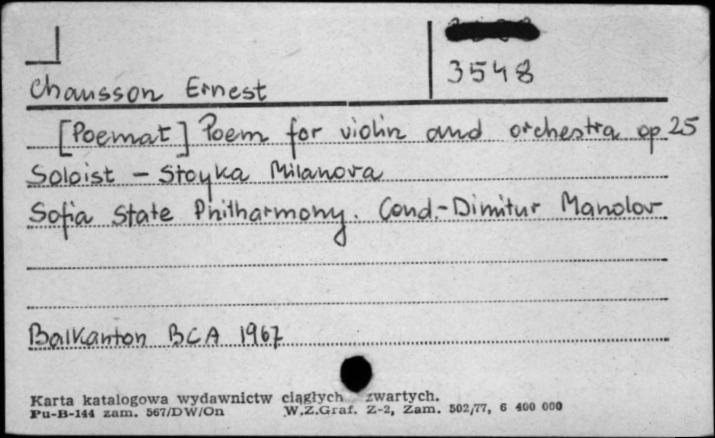 3548
Chausson Ernest
[Poemat] Poem for violin and orchestra op. 25
Soloist – Stoyka Milanova
Sofia State Philharmony. Cond.-Dimitur Manolov
Balkanton BCA 1967
Karta katalogowa wydawnictw ciągłych zwartych.
Pu-B-144 zam. 567/DW/On W.Z.Graf. Z-2, Zam. 502/77, 6 400 000